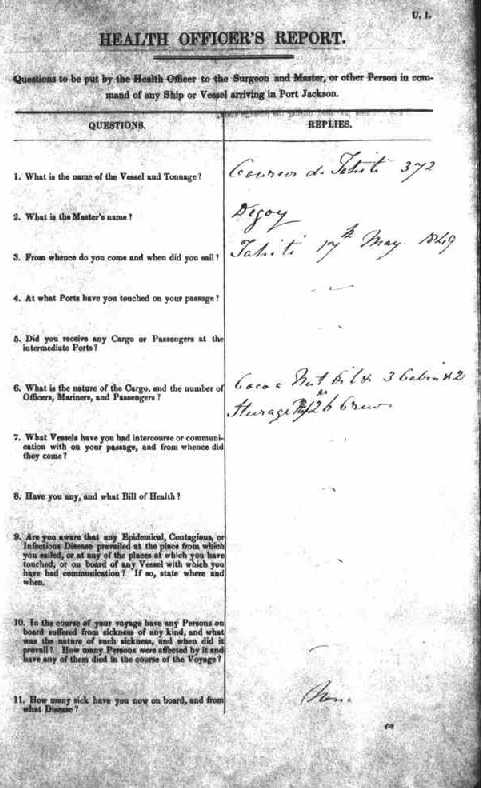 U. I.
HEALTH OFFICER'S REPORT.
Questions to be put by the Health Officer to the Surgeon and Master, or other Person in com-
mand of any Ship or Vessel arriving in Port Jackson.
QUESTIONS.
REPLIES.
1. What is the name of the Vessel and Tonnage?
de Tahiti 372
2. What is the Master's name?
Degoy
3. From whence do you come and when did you sail?
Tahiti 17th May 1849
4. At what Ports have you touched on your passage?
5. Did you receive any Cargo or Passengers at the
intermediate Ports?
6. What is the nature of the Cargo, and the number of
Officers, Mariners, and Passengers?
Cocoa Nut Oil & 3 Cabin & 2
Steerage 26 Crew
7. What Vessels have you had intercourse or communi-
cation with on your passage, and from whence did
they come?
8. Have you any, and what Bill of Health?
9. Are you aware that any Epidemical, Contagious, or
Infectious Disease prevailed at the place from which
you sailed, or at any of the places at which you have
touched, or on board of any Vessel with which you
have had communication? If so, state where and
when.
10. In the course of your voyage have any Persons on
board suffered from sickness of any kind, and what
was the nature of such sickness, and when did it
prevail? How many Persons were affected by it and
have any of them died in the course of the Voyage?
11. How many sick have you now on board, and from
what Disease?